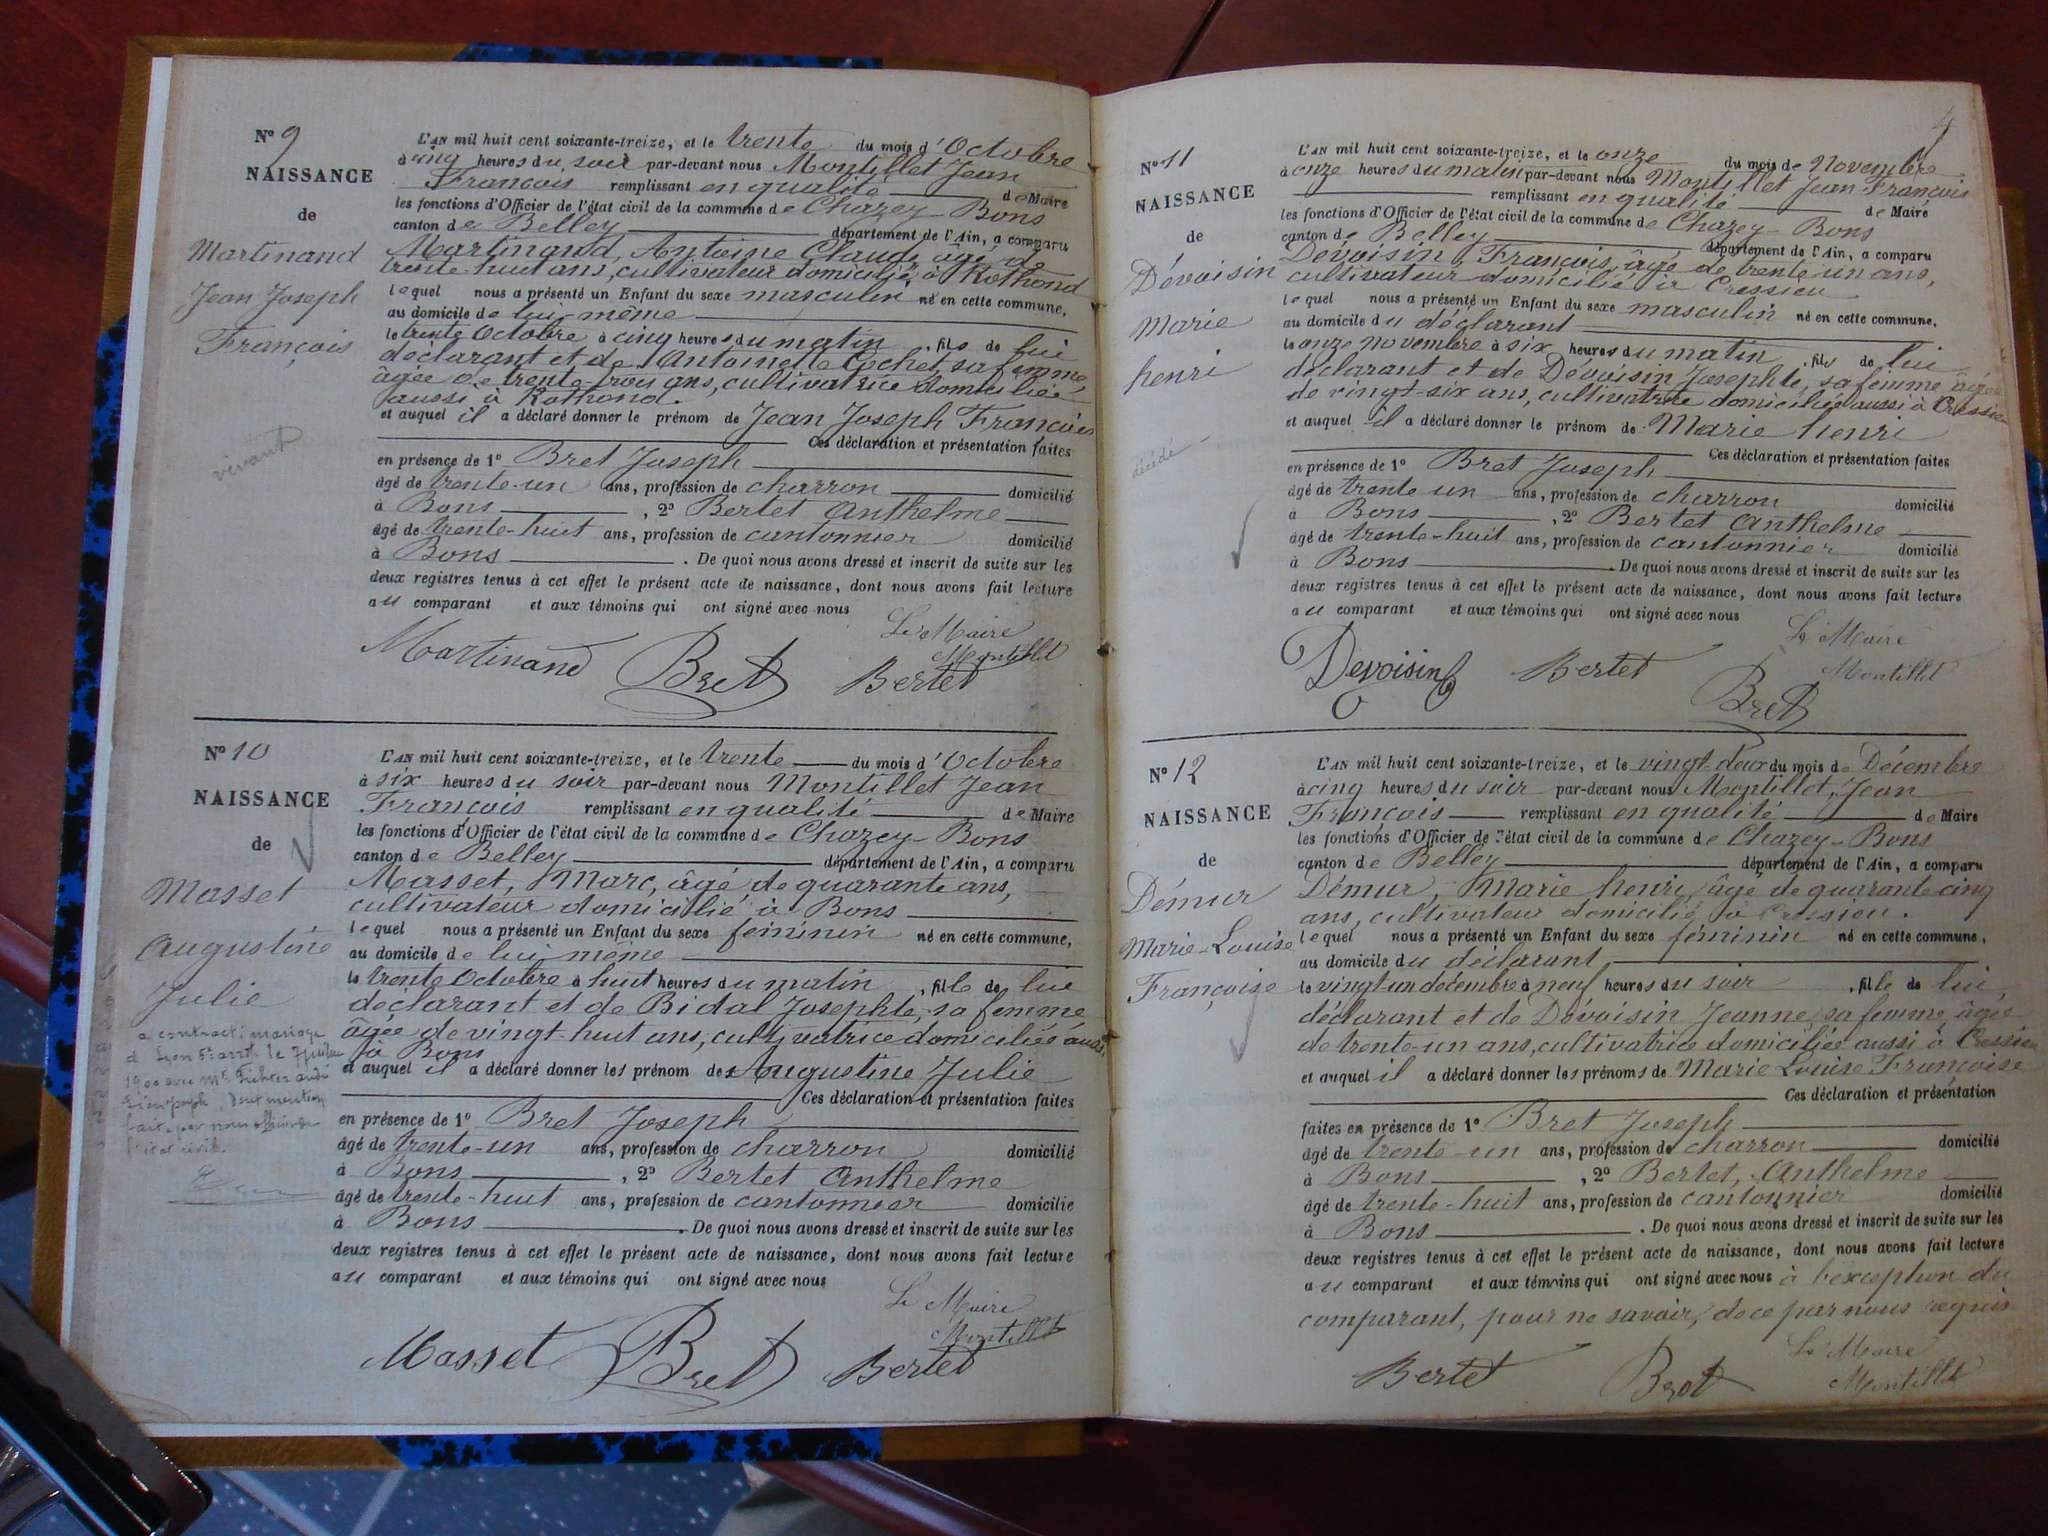 N° 9
NAISSANCE
de
Martinand
Jean Joseph
François
vivant
L'AN mil huit cent soixante-treize, et le trente du mois d'Octobre
à cinq heures du soir par-devant nous Montillet Jean
François remplissant en qualité de Maire
les fonctions d'Officier de l'état civil de la commune de Chazey-Bons
canton de Belley département de l'Ain, a comparu
Martinand, Antoine Claude, âgé de
trente-huit ans, cultivateur domicilié à Rothond
lequel nous a présenté un Enfant du sexe masculin né en cette commune,
au domicile de lui même
le trente Octobre à cinq heures du matin, fils de lui
déclarant et de Antoinette Cochet, sa femme
âgée de trente-trois ans, cultivatrice domiciliée
aussi à Rothond.
et auquel il a déclaré donner le prénom de Jean Joseph François
Ces déclaration et présentation faites
en présence de 1° Bret Joseph
âgé de trente-un ans, profession de charron domicilié
à Bons, 2° Bertet Anthelme
âgé de trente-huit ans, profession de cantonnier domicilié
à Bons. De quoi nous avons dressé et inscrit de suite sur les
deux registres tenus à cet effet le présent acte de naissance, dont nous avons fait lecture
au comparant et aux témoins qui ont signé avec nous
Le Maire
Martinand Bret Bertet Montillet
N° 10
NAISSANCE
de
Masset
Augustine
Julie
a contracté mariage
à Lyon 5e arrt le 7
1900 avec Mr
Joseph, Dont mention
faite par nous officier de
l'état civil.
L'AN mil huit cent soixante-treize, et le trente du mois d'Octobre
à six heures du soir par-devant nous Montillet Jean
François remplissant en qualité de Maire
les fonctions d'Officier de l'état civil de la commune de Chazey-Bons
canton de Belley département de l'Ain, a comparu
Masset, Marc, âgé de quarante ans,
cultivateur domicilié à Bons
lequel nous a présenté un Enfant du sexe féminin né en cette commune,
au domicile de lui même
le trente Octobre à huit heures du matin, fille de lui
déclarant et de Bidal Josephte, sa femme
âgée de vingt-huit ans, cultivatrice domiciliée aussi
à Bons
et auquel il a déclaré donner les prénom de Augustine Julie
Ces déclaration et présentation faites
en présence de 1° Bret Joseph
âgé de trente-un ans, profession de charron domicilié
à Bons, 2° Bertet Anthelme
âgé de trente-huit ans, profession de cantonnier domicilié
à Bons. De quoi nous avons dressé et inscrit de suite sur les
deux registres tenus à cet effet le présent acte de naissance, dont nous avons fait lecture
au comparant et aux témoins qui ont signé avec nous
Le Maire
Masset Bret Bertet Montillet
4
N° 11
NAISSANCE
de
Dévoisin
Marie
henri
décédé
L'AN mil huit cent soixante-treize, et le onze du mois de Novembre
à onze heures du matin par-devant nous Montillet Jean François
remplissant en qualité de Maire
les fonctions d'Officier de l'état civil de la commune de Chazey-Bons
canton de Belley département de l'Ain, a comparu
Dévoisin, François, âgé de trente un ans,
cultivateur domicilié à Cressieu
lequel nous a présenté un Enfant du sexe masculin né en cette commune,
au domicile du déclarant
le onze novembre à six heures du matin, fils de lui
déclarant et de Dévoisin Josephte, sa femme âgée
de vingt-six ans, cultivatrice domiciliée aussi à Cressieu
et auquel il a déclaré donner le prénom de Marie henri
Ces déclaration et présentation faites
en présence de 1° Bret Joseph
âgé de trente un ans, profession de charron domicilié
à Bons, 2° Bertet Anthelme
âgé de trente-huit ans, profession de cantonnier domicilié
à Bons. De quoi nous avons dressé et inscrit de suite sur les
deux registres tenus à cet effet le présent acte de naissance, dont nous avons fait lecture
au comparant et aux témoins qui ont signé avec nous
Le Maire
Devoisin Bertet Montillet
Bret
N° 12
NAISSANCE
de
Démur
Marie-Louise
Françoise
L'AN mil huit cent soixante-treize, et le vingt-deux du mois de Décembre
à cinq heures du soir par-devant nous Montillet, Jean
François remplissant en qualité de Maire
les fonctions d'Officier de l'état civil de la commune de Chazey-Bons
canton de Belley département de l'Ain, a comparu
Démur, Marie henri, âgé de quarante cinq
ans, cultivateur domicilié à Cressieu.
lequel nous a présenté un Enfant du sexe féminin né en cette commune,
au domicile du déclarant
le vingt un décembre à neuf heures du soir, fille de lui
déclarant et de Dévoisin Jeanne, sa femme, âgée
de trente-un ans, cultivatrice domiciliée aussi à Cressieu
et auquel il a déclaré donner les prénoms de Marie Louise Françoise
Ces déclaration et présentation
faites en présence de 1° Bret Joseph
âgé de trente-un ans, profession de charron domicilié
à Bons, 2° Bertet, Anthelme
âgé de trente-huit ans, profession de cantonnier domicilié
à Bons. De quoi nous avons dressé et inscrit de suite sur les
deux registres tenus à cet effet le présent acte de naissance, dont nous avons fait lecture
au comparant et aux témoins qui ont signé avec nous à l'exception du
comparant, pour ne savoir, de ce par nous requis
Le Maire
Bertet Bret Montillet